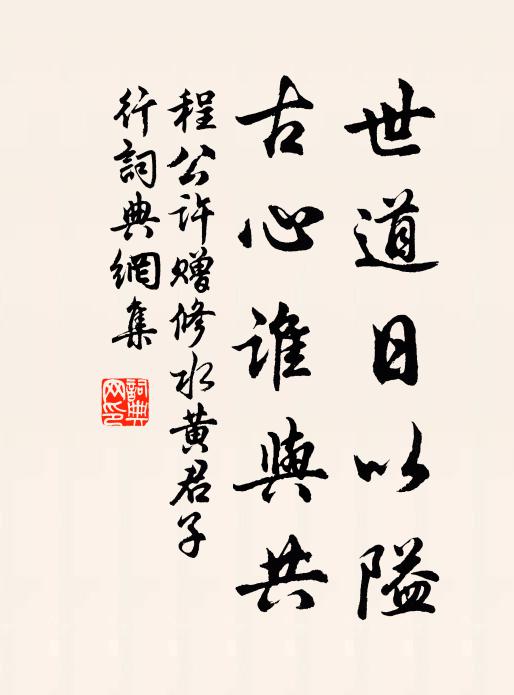 世道日以隘
古心誰與共
程公許贈修水黄君子
行詞典網集
詞典
网印